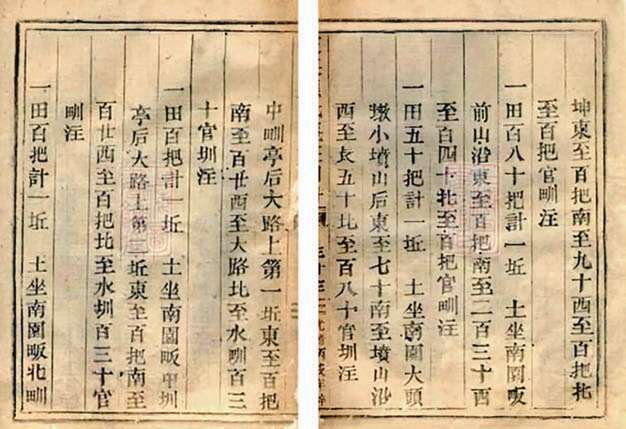 坤東至百把南至九十西至百把北
至百把官甽注
一田百八十把計一坵　土坐南園畈
前山沿東至百把南至二百三十西
至百四十北至百把官甽注
一田五十把計一坵　土坐南園大頭
墩小墳山后東至七十南至墳山沿
西至長五十北至百八十官圳注
中甽亭后大路上第一坵東至百把
南至百廿西至大路北至水甽百三
十官圳注
一田百把計一坵　土坐南園畈中圳
亭后大路上第三坵東至百把南至
百廿西至百把北至水圳百三十官
甽注
一田百把計一坵　土坐南園畈北甽